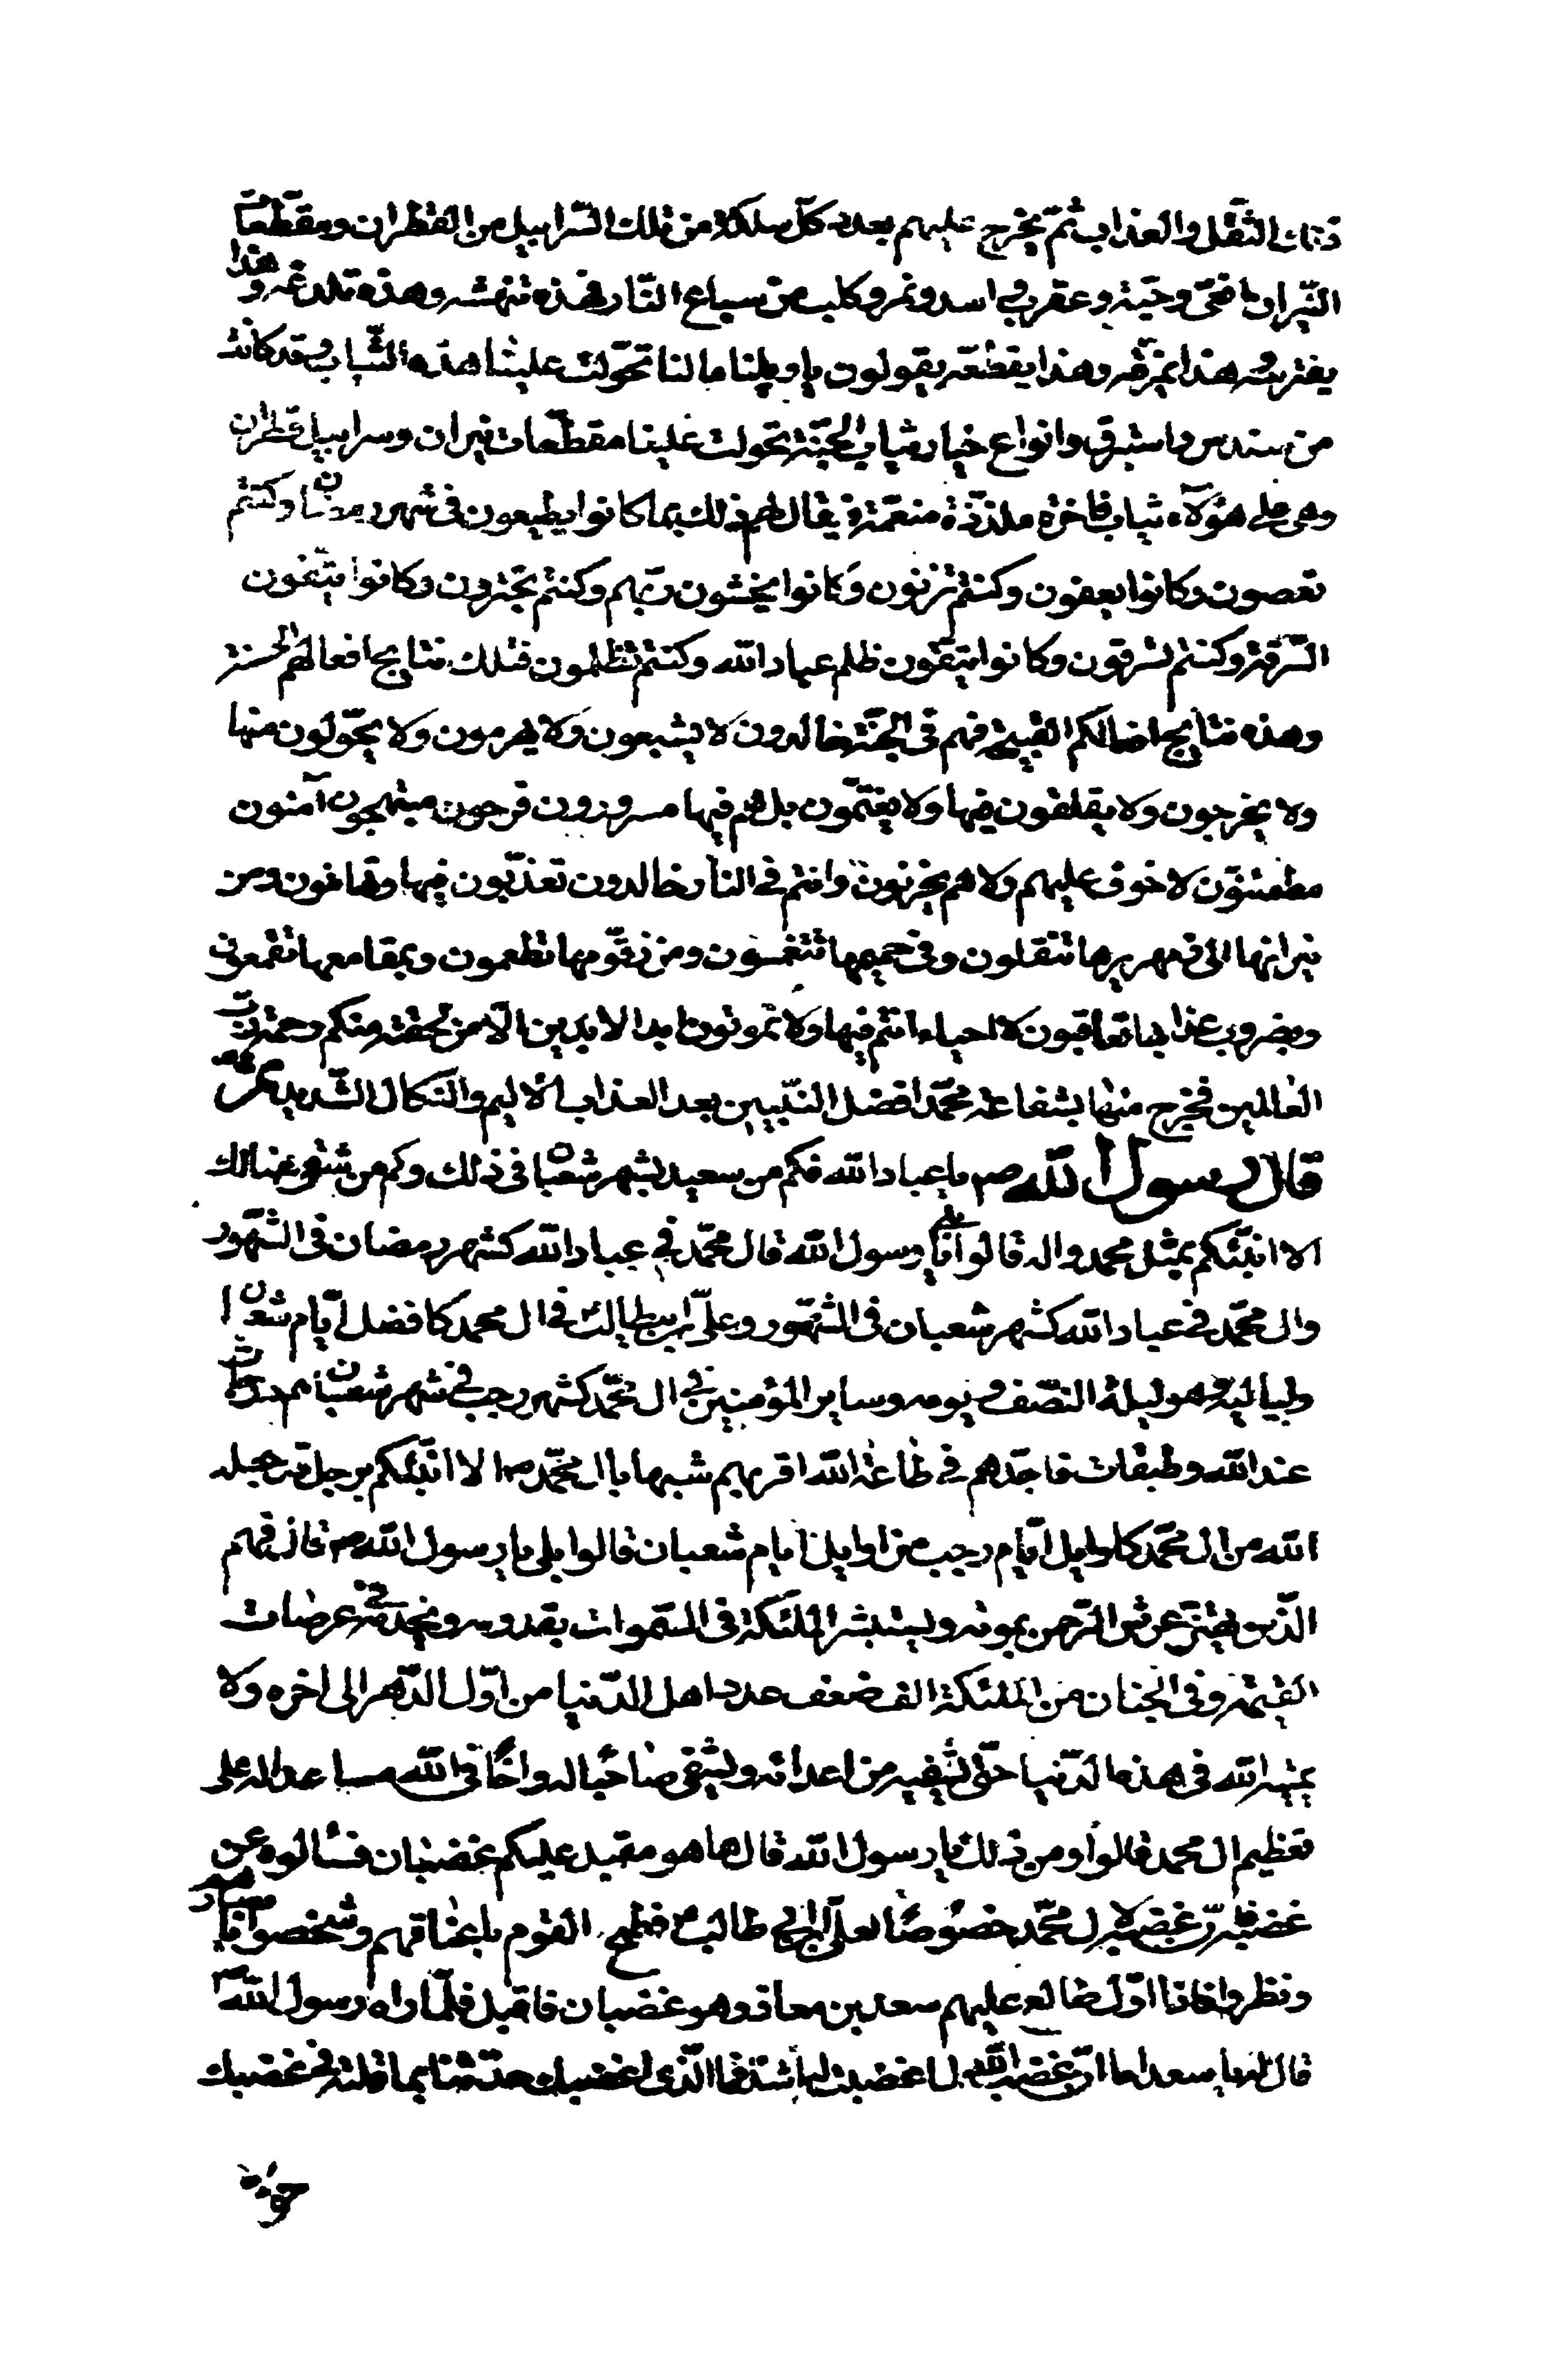 ذلك الثقل والعذاب ثم يخرج عليهم بعدد كل سلكة من تلك السرابيل من القطران ومقطعات
النيران افعى وحية وعقرب و اسد ونمر وكلب من سباع النار فهذه تنهشه وهذه تلدغه وهذا
يفترسه وهذا يمزقه وهذا يقطعه يقولون يا ويلنا ما لنا تحولت علينا هذه الثياب وقد كانت
من سندس واستبرق وانواع خيار ثياب الجنة تحولت علينا مقطعات نيران وسرابيل قطران
وهي على هؤلاء ثياب فاخرة ملذذة منعمة فيقال لهم ذلك بما كانوا يطيعون في شهر رمضان وكنتم
تعصون وكانوا يعفون وكنتم تزنون وكانوا يخشون ربهم وكنتم تجترون وكانوا يتقون
السرقة وكنتم تسرقون وكانوا يتقون ظلم عباد الله وكنتم تظلمون فتلك نتايج افعالهم الحسنة
وهذه نتايج افعالكم القبيحة فهم في الجنة خالدون لا يشيبون ولا يهرمون ولا يحولون منها
ولا يخرجون ولا يقلقون فيها ولا يغتمون بل هم فيها مسرورون فرحون مبتهجون آمنون
مطمئنون لا خوف عليهم ولا هم يحزنون وانتم في النار خالدون تعذبون فيها وتهانون ومن
نيرانها الى زمهريرها تنقلون وفي حميمها تنغمسون ومن زقومها تطعمون وبمقامعها تقمعون
وبضروب عذابها تعاقبون لا احياء انتم فيها ولا تموتون ابد الابدين الا من لحقته منكم رحمة رب
العالمين فخرج منها بشفاعة محمد افضل النبيين بعد العذاب الاليم والنكال الشديد
قال رسول الله ص يا عباد الله فكم من سعيد بشهر شعبان في ذلك وكم من شقي هنالك
الا انبئكم بمثل محمد واله قالوا بلى يا رسول الله قال محمد في عباد الله كشهر رمضان في الشهور
وال محمد في عباد الله كشهر شعبان في الشهور وعلي بن ابيطالب في ال محمد كافضل ايام شعبان
ولياليه وهو ليلة النصف ويومه وساير المؤمنين في ال محمد كشهر رجب في شهر شعبان هم درجات
عند الله وطبقات فاجدهم في طاعة الله اقربهم شبها بال محمد الا انبئكم برجل قد جعله
الله من ال محمد كاوايل ايام رجب من اوايل ايام شعبان قالوا بلى يا رسول الله ص قال فهم
الذين يهتز عرش الرحمن بموته ويستبشر الملئكة في السموات بقدومه ويخدمه في عرصات
القيمة وفي الجنان من الملئكة الف ضعف عدد اهل الدنيا من اول الدهر الى اخره ولا
يميته الله في هذه الدنيا حتى يشفيه من اعدائه ويشفى صاحبا له واخا في الله مساعدا له على
تعظيم ال محمد قالوا ومن ذلك يا رسول الله قال ها هو مقبل عليكم غضبان فسالوه عن
غضبه فان غضبه لال محمد خصوصا لعلي بن ابي طالب ع فطمح القوم باعناقهم وشخصوا بابصارهم
ونظروا فاذا اول طالع عليهم سعد بن معاذ وهو غضبان فاقبل فلما راه رسول الله ص
قال له يا سعد اما ان غضب الله لما غضبت له اشد فما الذي اغضبك حدثنا بما قلته في غضبك